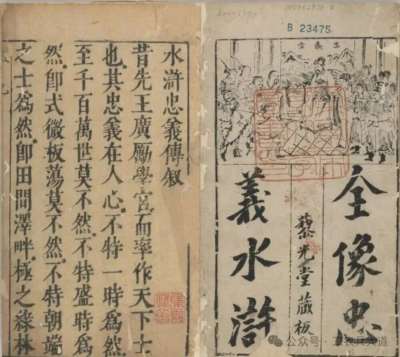 B 23475
全像忠
藜光堂藏板
義水滸
水滸忠義傳叙
昔先王廣勵學官而率作天下士
也其忠義在人心不特一時為然
至千百萬世莫不然不特盛時為
然即式微板蕩莫不然不特朝端
之士為然即田間澤畔極之綠林
公众号